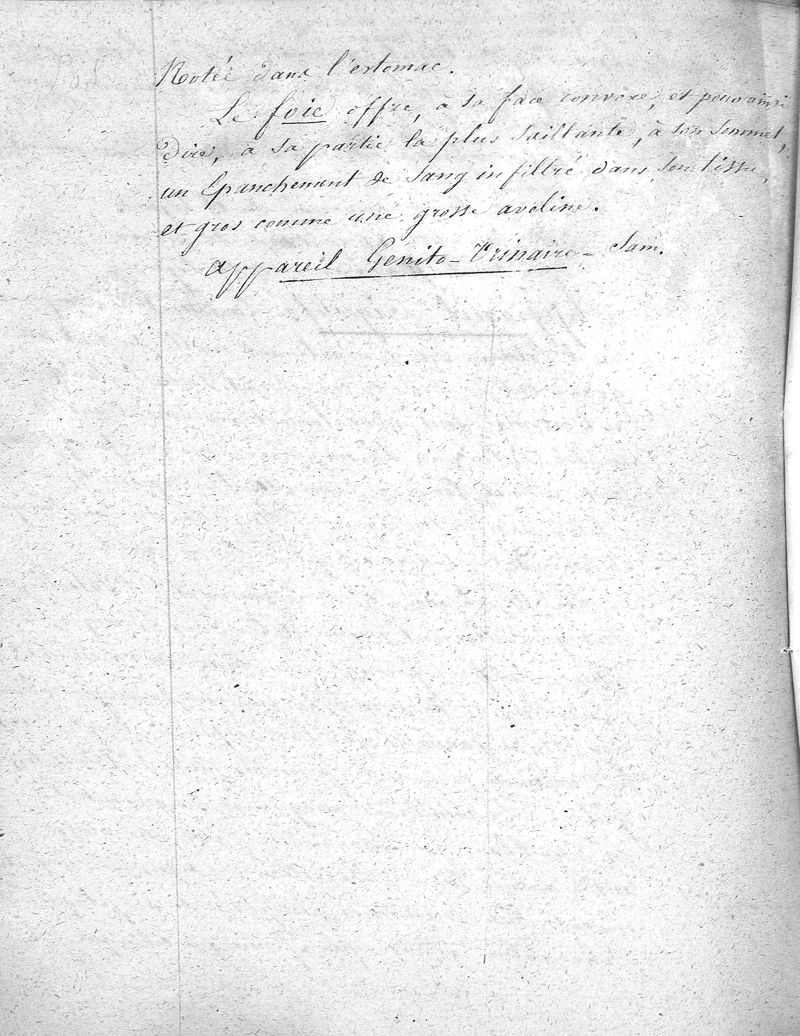 Notée dans l'estomac.
Le foie offre, à sa face convexe, et pour ainsi
dire, à sa partie la plus saillante, à son sommet,
un épanchement de sang infiltré dans son tissu,
et gros comme une grosse aveline.
appareil Génito-Urinaire - Sain.